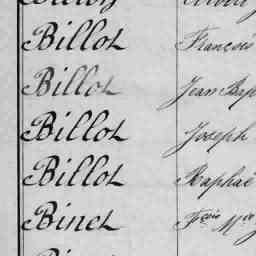 Billot François
Billot Jean Bap
Billot Joseph
Billot Raphaë
Binet Fçois